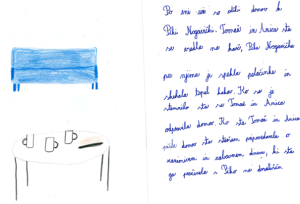 Po     so odšli domov k
Piki Nogavički. Tomaž in Anica sta
se usedla na kavč, Pika Nogavička
pa njima je spekla palačinke in
skuhala topel kakav. Ko se je
stemnilo sta se Tomaž in Anica
odpravila domov. Ko sta Tomaž in Anica
prišla domov sta staršem pripovedovala o
zanimivem in zabavnem dnevu, ki sta
ga preživela s Piko na drsališču.